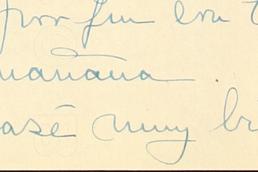 por fin con
mañana
pasé muy b